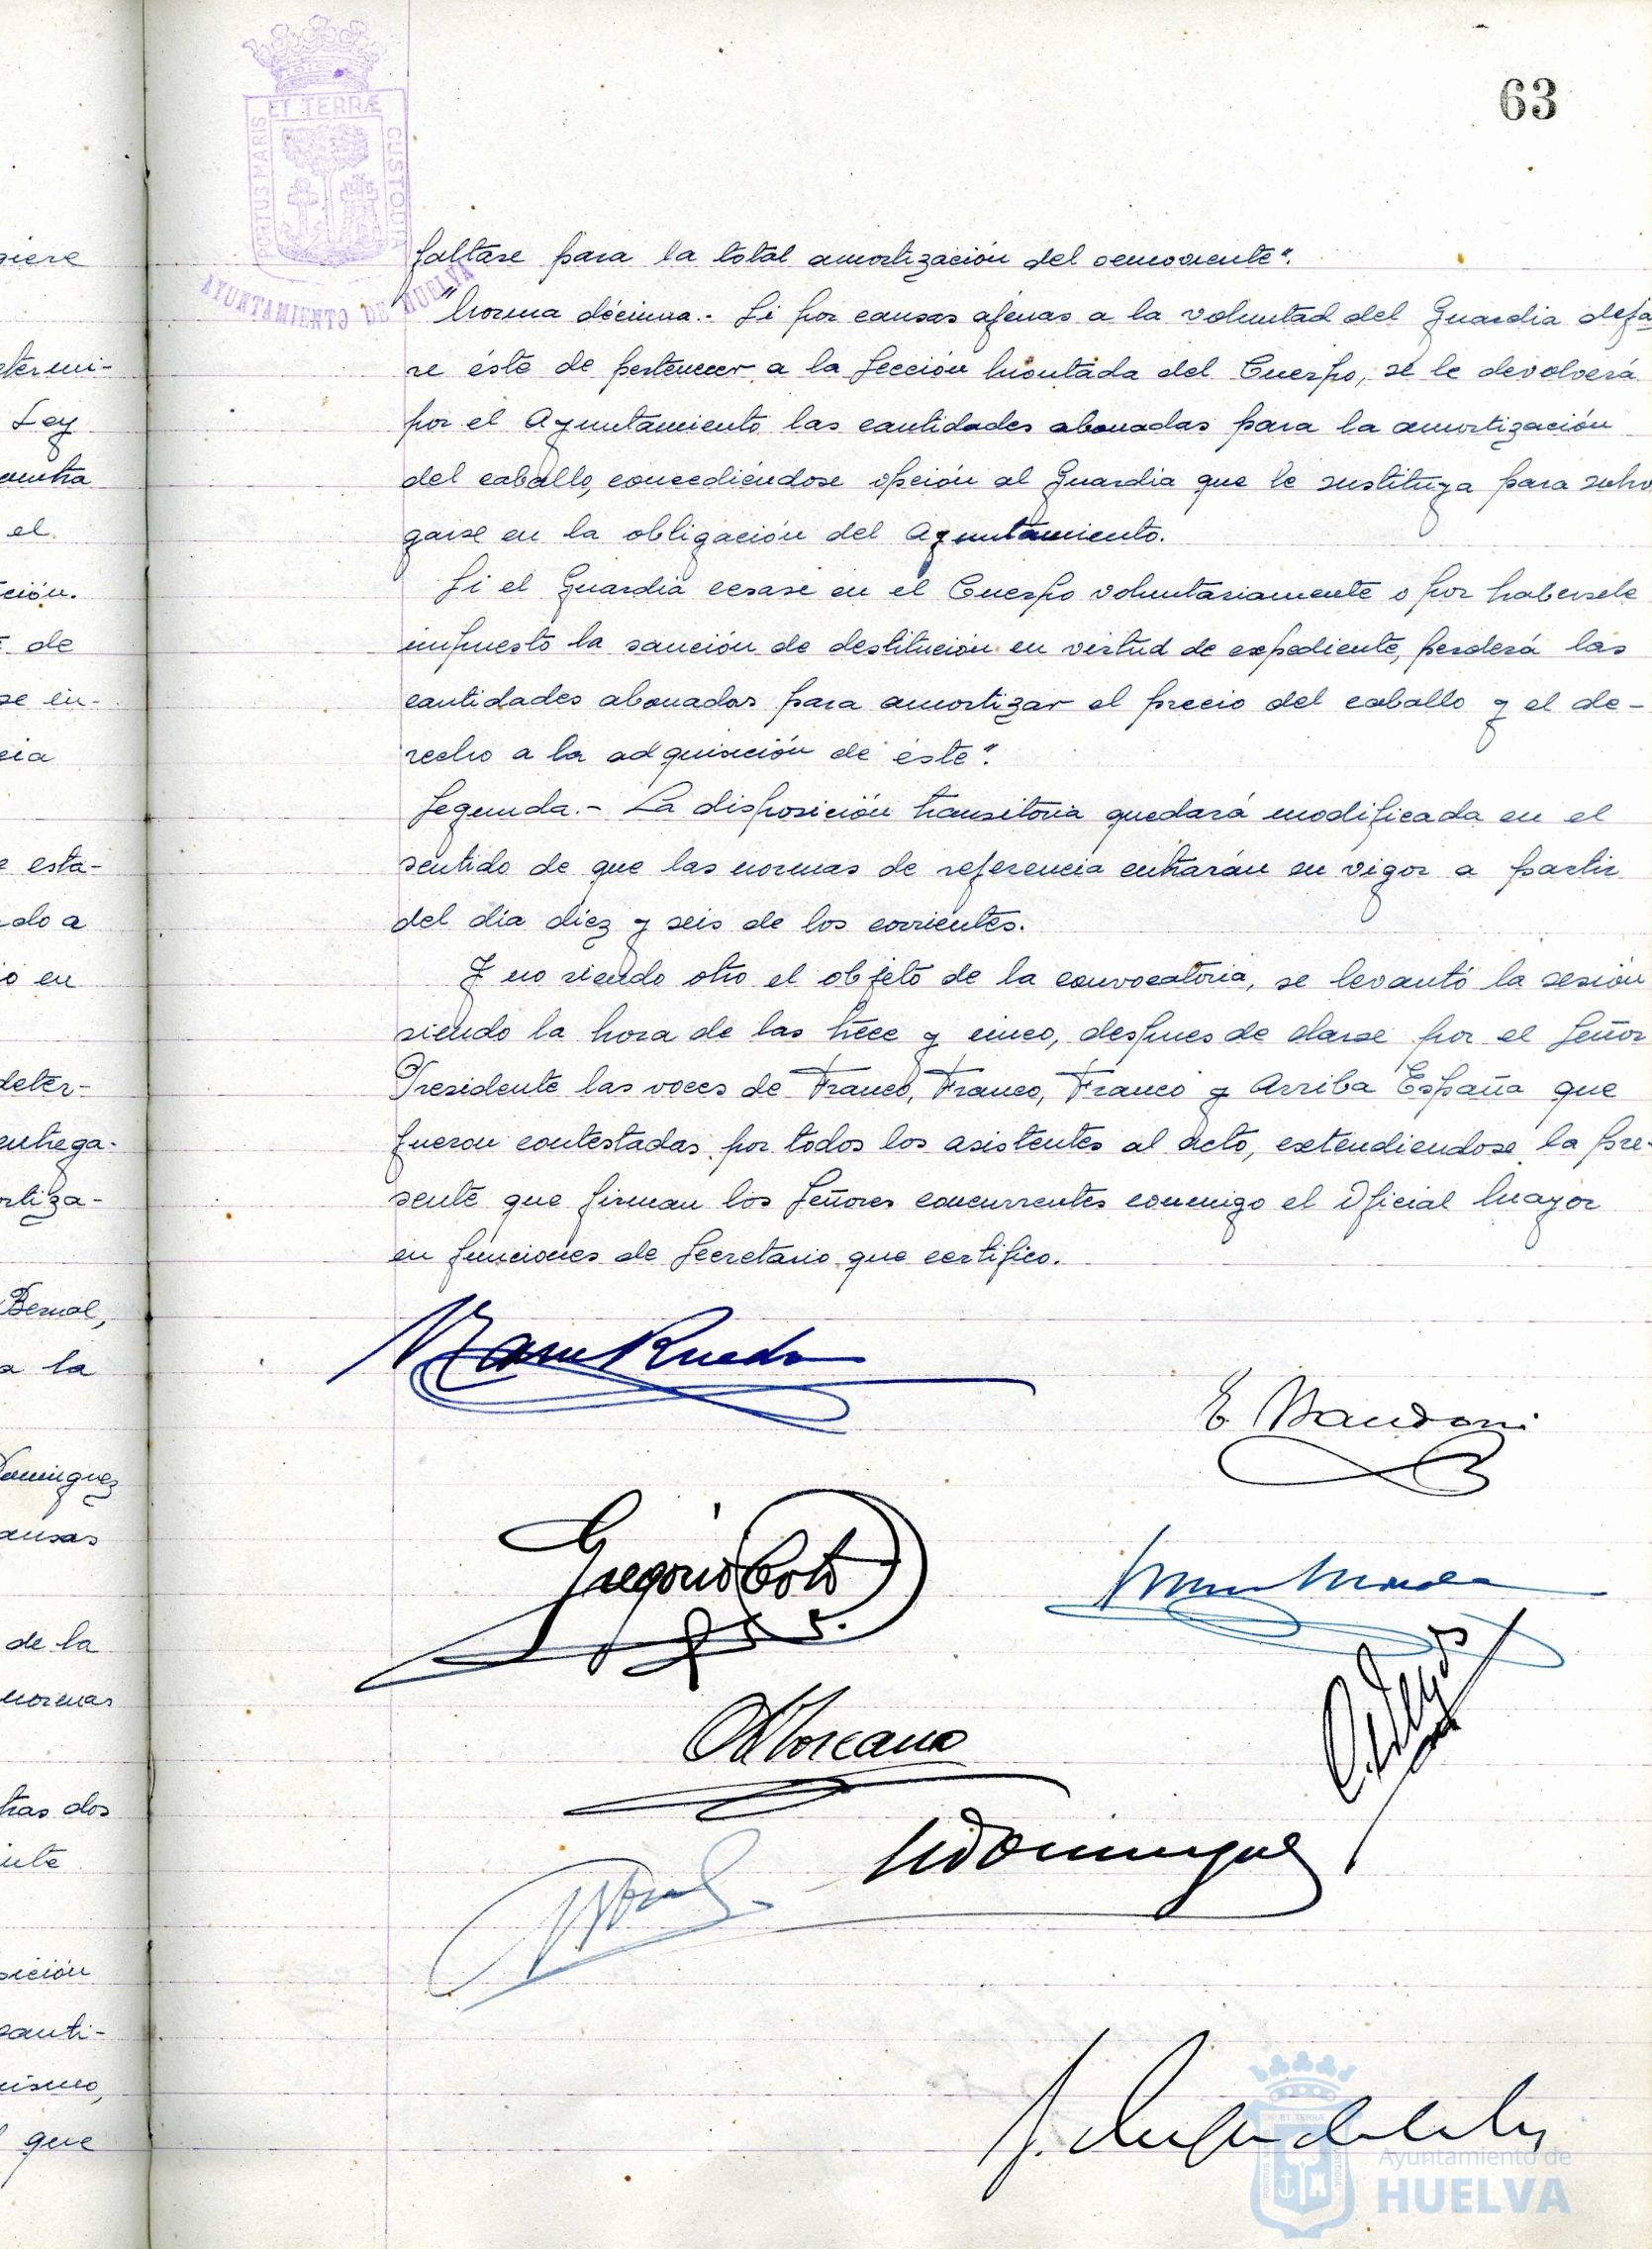 63
ET TERRÆ
PORTUS MARIS
CUSTODIA
AYUNTAMIENTO DE HUELVA
giere
etermi-
Ley
el
ción.
de
se in-
cia
e esta-
ado a
o en
deter-
entrega-
ortiza-
Bernal,
a la
Dominguez
ausas
de la
normas
tras dos
sición
canti-
mismo,
que
faltase para la total amortización del semoviente".
"Norma décima.- Si por causas ajenas a la voluntad del Guardia deja
re éste de pertenecer a la Sección Montada del Cuerpo, se le devolverá
por el Ayuntamiento las cantidades abonadas para la amortización
del caballo, concediéndose opción al Guardia que le sustituya para subro
garse en la obligación del Ayuntamiento.
Si el Guardia cesase en el Cuerpo voluntariamente o por habersele
impuesto la sanción de destitución en virtud de expediente, perderá las
cantidades abonadas para amortizar el precio del caballo y el de-
recho a la adquisición de éste".
Segunda.- La disposición transitoria quedará modificada en el
sentido de que las normas de referencia entrarán en vigor a partir
del día diez y seis de los corrientes.
Y no siendo otro el objeto de la convocatoria, se levantó la sesión
siendo la hora de las trece y cinco, despues de darse por el Señor
Presidente las voces de Franco, Franco, Franco y Arriba España que
fueron contestadas por todos los asistentes al acto, extendiendose la pre-
sente que firman los Señores concurrentes conmigo el Oficial Mayor
en funciones de Secretario que certifico.
Rueda
E.
Gregorio Coto
Dominguez
Ayuntamiento de
HUELVA